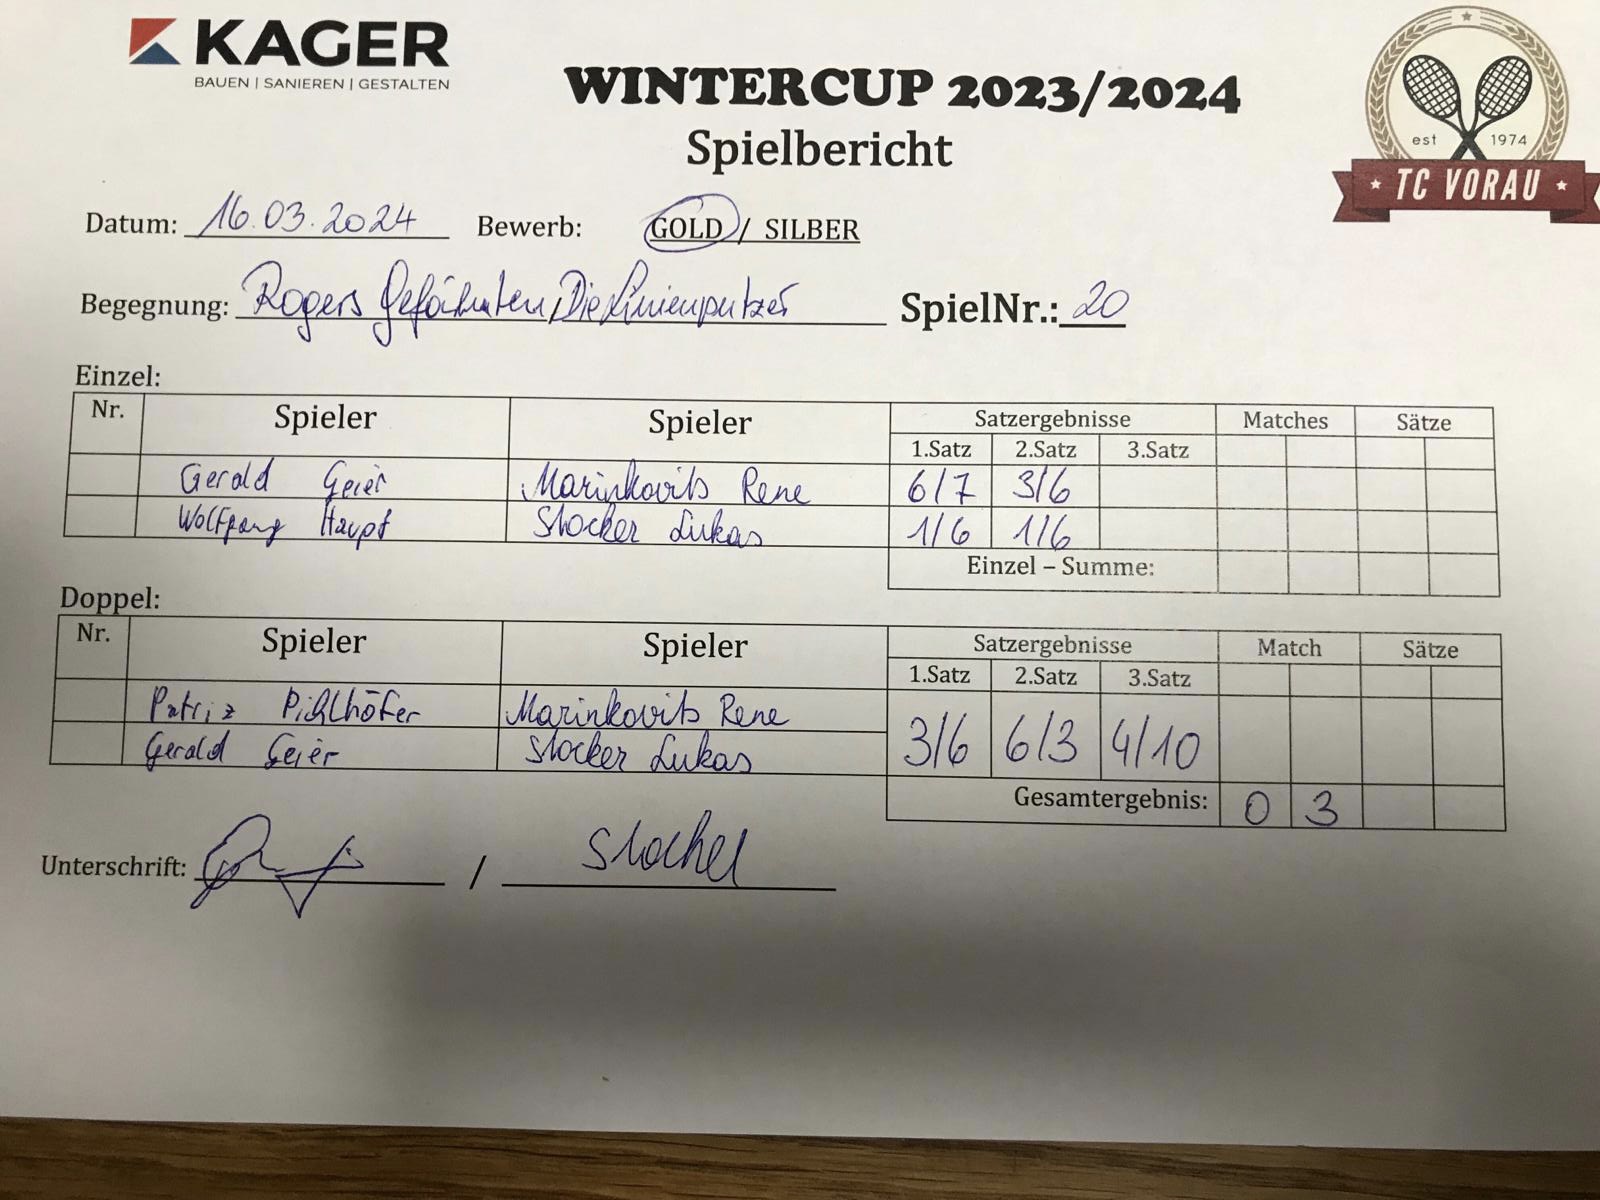 KAGER
BAUEN | SANIEREN | GESTALTEN
WINTERCUP 2023/2024
Spielbericht
est 1974
TC VORAU
Datum: 16.03.2024 Bewerb: GOLD / SILBER
Begegnung: Rogers Gefährten, Die Linienputzer SpielNr.: 20
Einzel:
Nr. Spieler Spieler Satzergebnisse Matches Sätze
1.Satz 2.Satz 3.Satz
Gerald Geier Marinkovits Rene 6/7 3/6
Wolfgang Haupt Stocker Lukas 1/6 1/6
Einzel – Summe:
Doppel:
Nr. Spieler Spieler Satzergebnisse Match Sätze
1.Satz 2.Satz 3.Satz
Patriz Pichlhöfer Marinkovits Rene
Gerald Geier Stocker Lukas 3/6 6/3 4/10
Gesamtergebnis: 0 3
Unterschrift: / Stocker